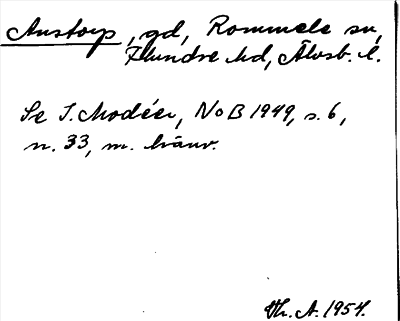 Anstorp, gd, Rommele sn,
Flundre hd, Älvsb. l.
Se I. Modéer, NoB 1949, s. 6,
n. 33, m. hänv.
Th. A. 1954.